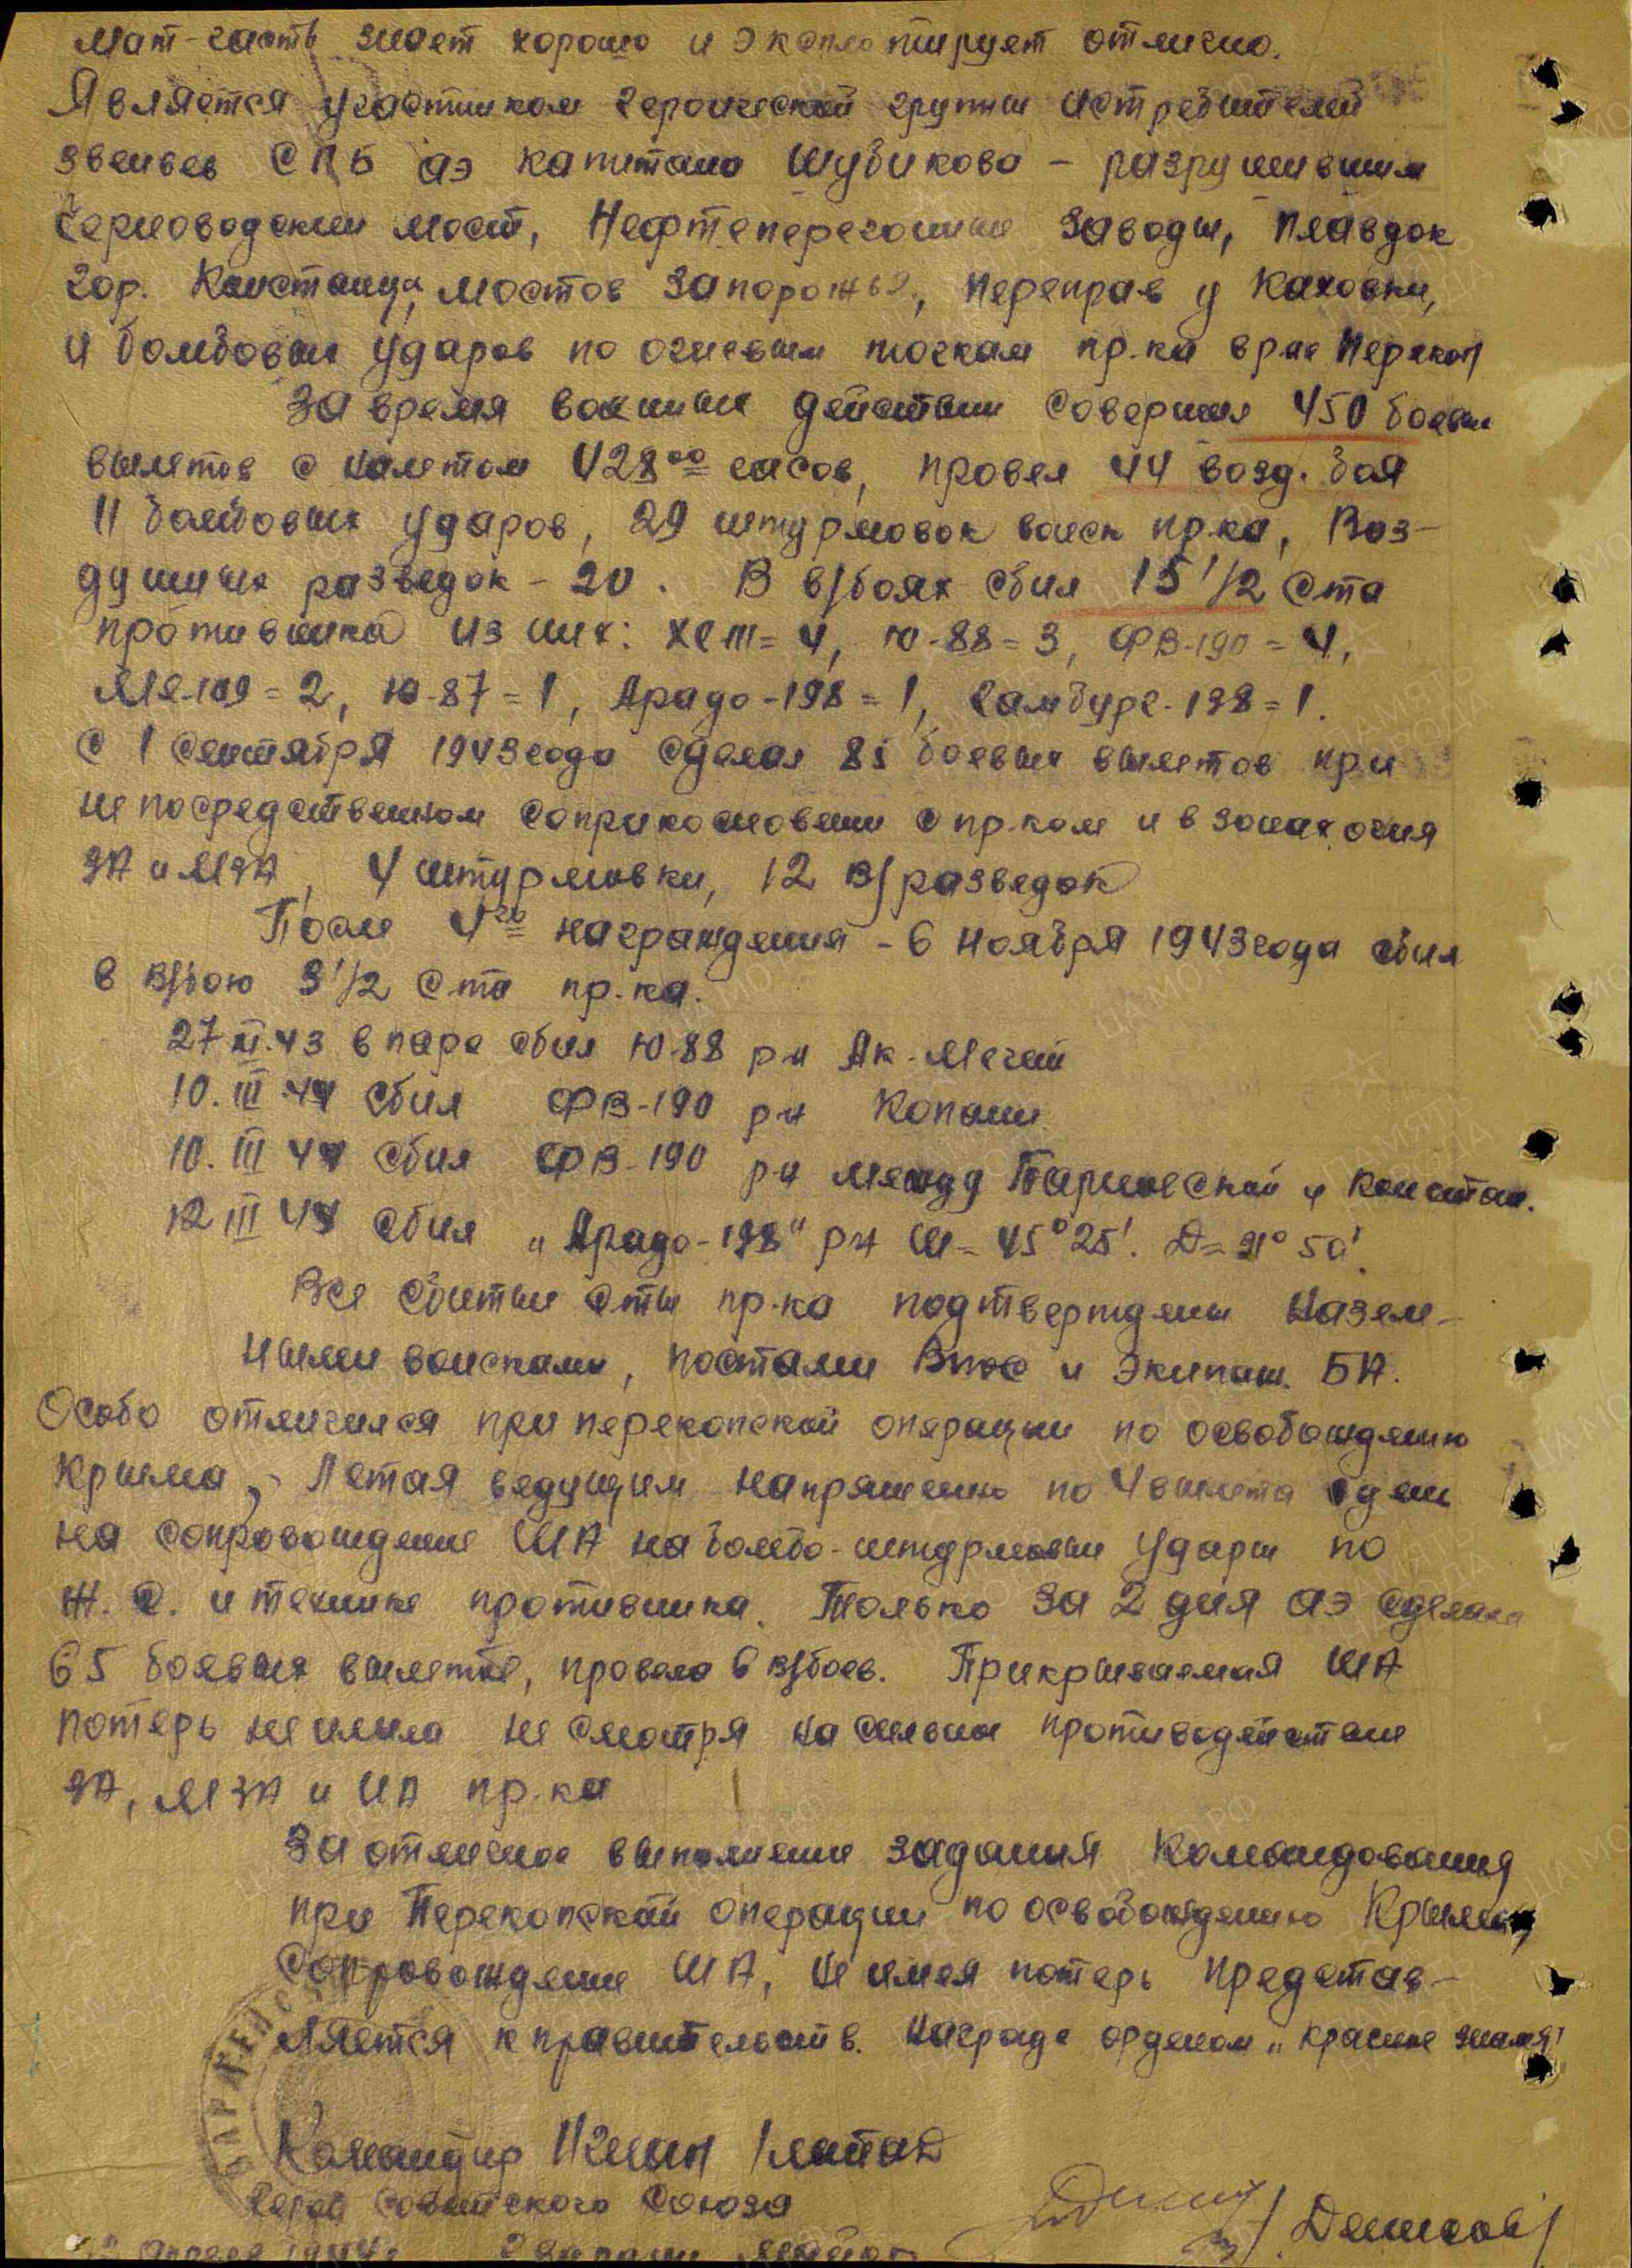 мат-часть знает хорошо и эксплотирует отлично.
Является участником героической группы истребителей
звеньев СПБ аэ капитана Шубикова – разрушившим
Черноводский мост, Нефтеперегонные заводы, плавдок
гор. Констанца, мостов Запорожье, переправ у Каховки,
и бомбовых ударов по огневым точкам пр.ка в р-не Перекоп
За время военных действий совершил 450 боевых
вылетов с налетом 428⁰⁰ часов, провел 44 возд. боя
11 бомбовых ударов, 29 штурмовок войск пр.ка, Воз-
душных разведок – 20. В в/боях сбил 15 1/2 с-та
противника из них: ХЕ111 = 4, Ю-88 = 3, ФВ-190 = 4,
МЕ-109 = 2, Ю-87 = 1, Арадо-198 = 1, Гамбург-198 = 1.
С 1 сентября 1943 года сделал 85 боевых вылетов при
непосредственном соприкосновении с пр.ком и в зонах огня
ЗА и МЗА, 4 штурмовки, 12 в/разведок
После 4го награждения – 6 ноября 1943 года сбил
в в/бою 3 1/2 с-та пр.ка.
27 XI.43 в паре сбил Ю-88 р-н Ак-Мечеть
10.III.44 сбил ФВ-190 р-н Копани
10.III 44 сбил ФВ-190 р-н между и Констан.
12 III 44 сбил „Арадо-198" р-н Ш = 45° 25'. Д = 31° 50'.
Все сбитые с-ты пр.ка подтверждены назем-
ными войсками, постами ВНОС и экипаж. БА.
Особо отличился при перекопской операции по освобождению
Крыма, Летая ведущим напряженно по 4 вылета в день
на сопровождение ША на бомбо-штурмовые удары по
ж. с. и технике противника. Только за 2 дня аэ сделала
65 боевых вылетов, провела 6 в/боев. Прикрываемая ША
потерь не имела не смотря на сильное противодействие
ЗА, МЗА и ИА пр.ка
За отличное выполнение задания Командования
при Перекопской операции по освобождению Крыма,
Сопровождение ША, не имея потерь представ-
ляется к правительств. награде орденом „Красное знамя"
Командир 11 Гиап
Герой Советского Союза
апреля 1944г. Гвардии майор /Денисов/